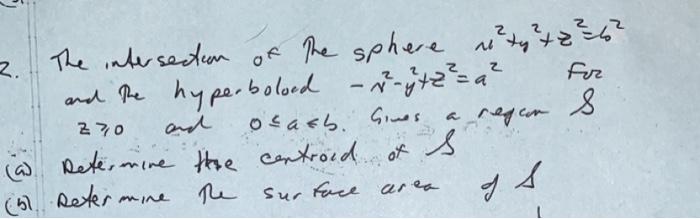 2. The intersection of the sphere x²+y²+z²=b²
and the hyperboloid -x²-y²+z²=a² for
z≥0 and 0≤a≤b. Gives a region S
(a) Determine the centroid of S
(b) Determine the surface area of S